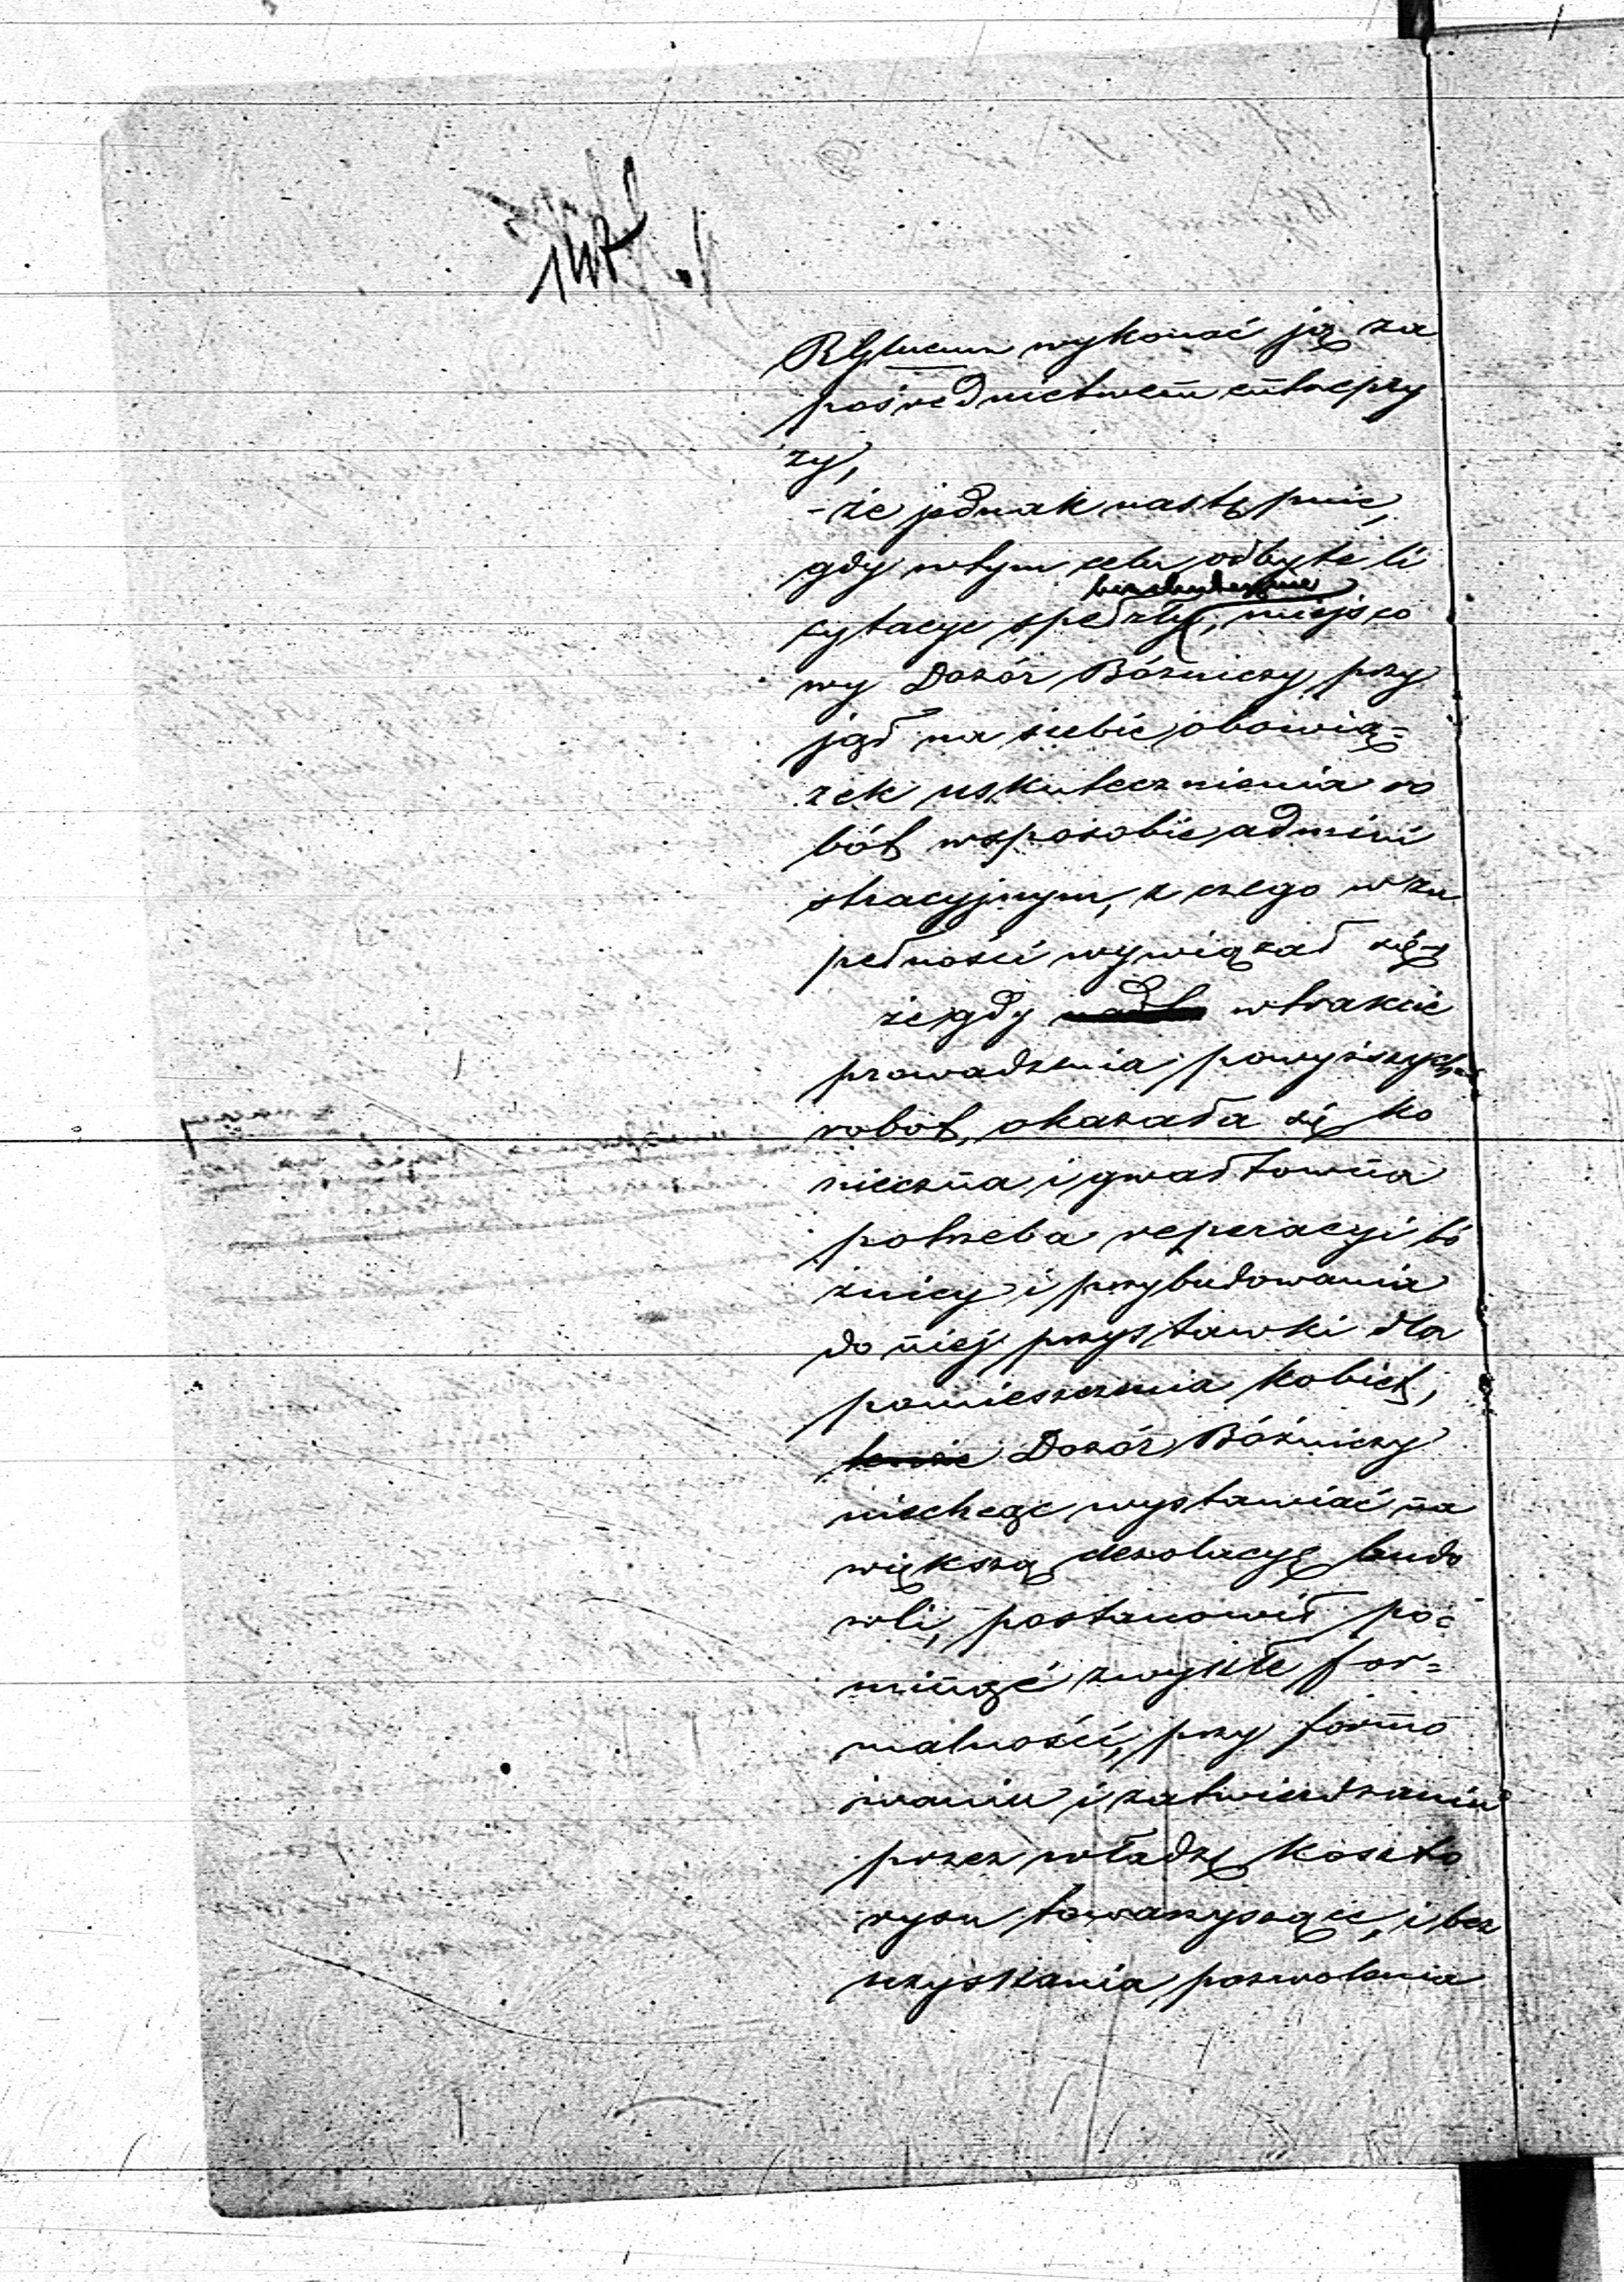 wykonać ją za
pośrednictwem entrepry
zy,
- że jednak następnie,
gdy wtym celu odbyte li
bezskutecznie
cytacye spełzły, miejsco
wy Dozór Bóżniczy, przy
jął na siebie obowią=
zek uskutecznienia ro
bót wsposobie admini
stracyjnym, z czego wzu
pełności wywiązał się,
że gdy wtrakcie
prowadzenia powyższych
robot, okazała się ko
nieczna i gwałtowna
potrzeba reperacyi bó
żnicy i przybudowania
do niej przystawki dla
pomieszczenia kobiet,
tenże Dozór Bóżniczy
niechcąc wystawiać na
większą dezolacyę budo
wli, postanowił po=
minąć zwykłe for=
malności, przy formo
waniu i zatwierdzaniu
przez władzę koszto
rysu towarzyszące, i bez
uzyskania pozwolenia